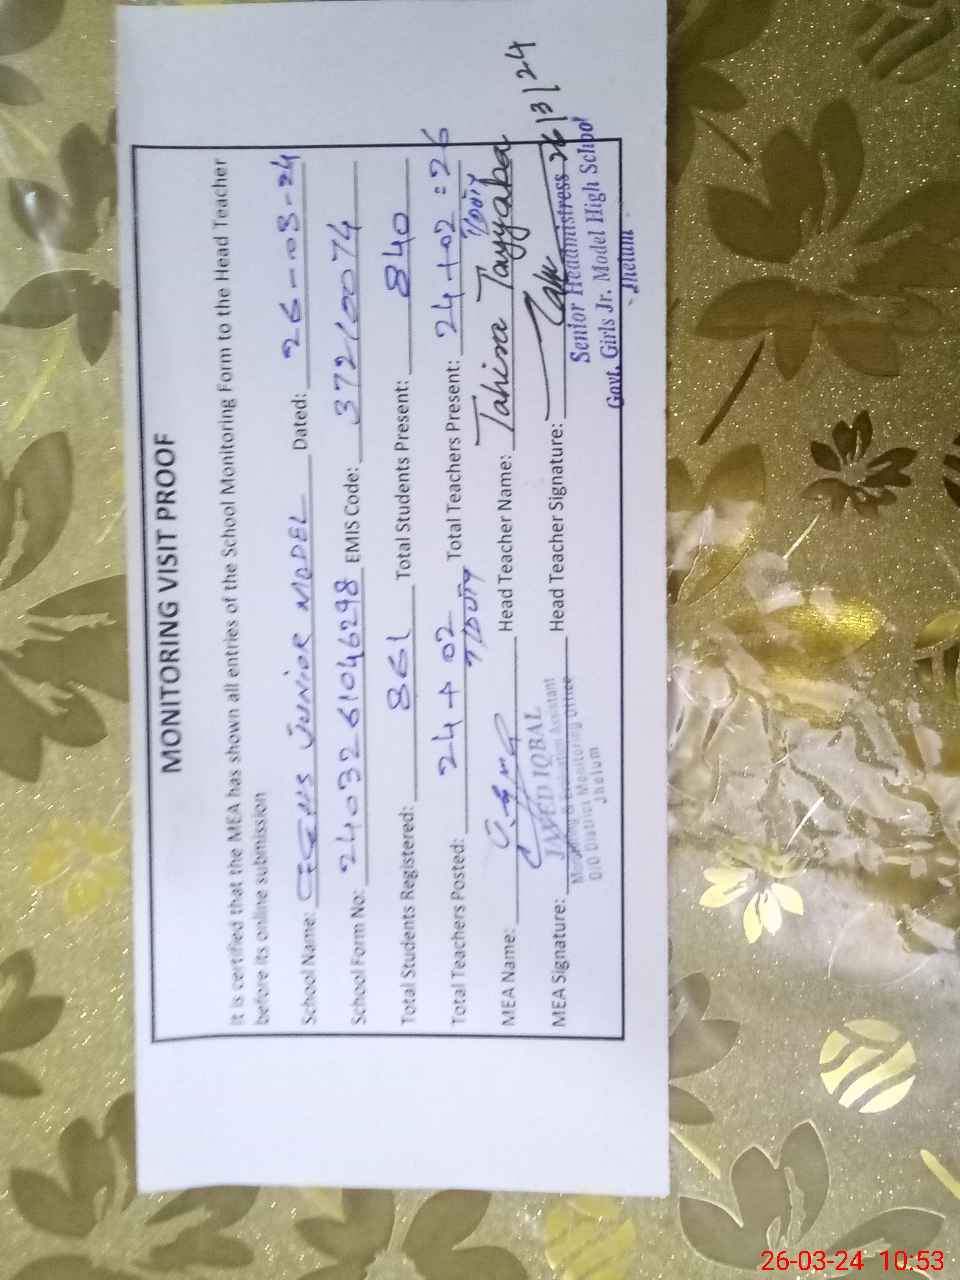 MONITORING VISIT PROOF
It is certified that the MEA has shown all entries of the School Monitoring Form to the Head Teacher
before its online submission
School Name: GGHS JUNIOR MODEL Dated: 26-03-24
School Form No: 2403261046298 EMIS Code: 37210074
Total Students Registered: 861 Total Students Present: 840
Total Teachers Posted: 24 + 02 Total Teachers Present: 24 + 02 = 26
MEA Name: Head Teacher Name: Tahira Tayyaba
MEA Signature: Head Teacher Signature: 26/3/24
JAVED IQBAL
Monitoring & Evaluation Assistant
O/O District Monitoring Office
Jhelum
Senior Headmistress
Govt. Girls Jr. Model High School
Jhelum
26-03-24 10:53